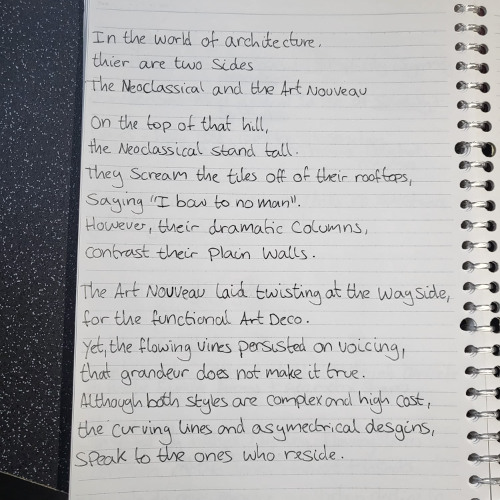 In the world of architecture.
thier are two Sides
The Neoclassical and the Art Nouveau
On the top of that hill,
the Neoclassical stand tall.
They Scream the tiles off of their rooftops,
Saying "I bow to no man".
However, their dramatic Columns,
contrast their Plain Walls.
The Art Nouveau laid twisting at the Wayside,
for the functional Art Deco.
Yet, the flowing vines persusted on voicing,
that grandeur does not make it true.
Although both styles are complex and high cost,
the curving lines and asymectrical desgins,
Speak to the ones who reside.